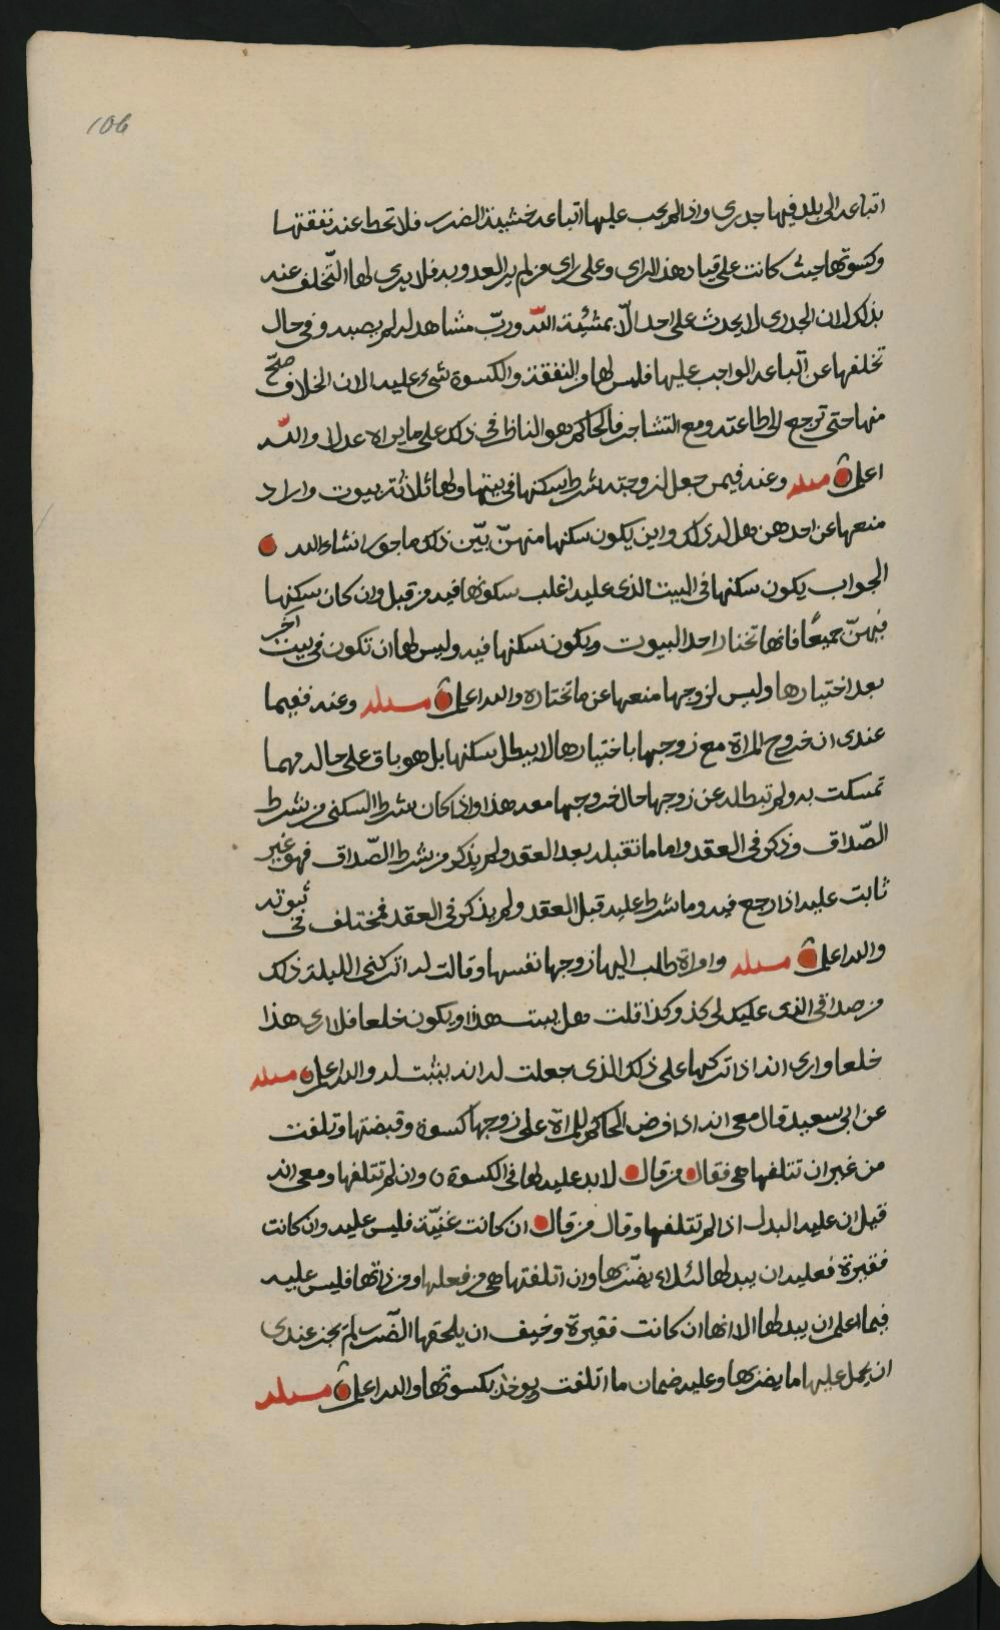 106
اتباعه الى بلد فيها جدري واذا لم يجب عليها اتباعه خشية الضرر فلا تحط عنه نفقتها
وكسوتها حيث كانت على قياد هذا الراى وعلى راى من لم ير العدو به فلا يدرى لها التّخلف عنه
بذلك لان الجدرى لا يحدث على احد الّا بمشيّة اللّه وربّ مشاهد له لم يصبه وفى حال
تخلفها عن اتباعه الواجب عليها فليس لها من النفقة والكسوة شىء عليه لان الخلاف صحّ
منها حتى ترجع الى طاعته ومع التشاجر فالحاكم هو الناظر فى ذلك على ما يراه عدلا واللّه
اعلم مسئلة وعنه فيمن جعل لزوجته شرط سكنها فى بيتها ولها ثلاثة بيوت واراد
منعها عن احدهن هل له ذلك واين يكون سكنها منهنّ بيّن ذلك ماجورا انشاء الله
الجواب يكون سكنها فى البيت الذى عليه اغلب سكونها فيه من قبل وان كان سكنها
فيهنّ جميعًا فانها تختار احد البيوت ويكون سكنها فيه وليس لها ان تكون فى بيت اخر
بعد اختيارها وليس لزوجها منعها عن ما تختاره والله اعلم مسئلة وعنه ففيما
عندى ان خروج المراة مع زوجها باختيارها لا يبطل سكنها بل هو باق على حاله مهما
تمسكت به ولم تبطله عن زوجها حال خروجها معه هذا واذا كان شرط السكنى من شرط
الصّداق وذكر فى العقد واما ما تقبله بعد العقد ولم يذكر من شرط الصّداق فهو غير
ثابت عليه اذا رجع فيه وما شرط عليه قبل العقد ولم يذكر فى العقد فمختلف فى ثبوته
والله اعلم مسئلة وامراة طلب اليها زوجها نفسها وقالت له اتركنى الليلة ذلك
من صداقى الذى عليك لى كذ وكذا قلت هل يثبت هذا ويكون خلعا فلا ارى هذا
خلعا وارى انه اذا تركها على ذلك الذى جعلت له انه يثبت له والله اعلم مسئلة
عن ابى سعيد قال معى انه اذا فرض الحاكم للمراة على زوجها كسوة وقبضتها وتلفت
من غير ان تتلفها هى فقال من قال لا بد عليه لها فى الكسوة وان لم تتلفها ومعى انه
قيل ان عليه البدل اذا لم تتلفها وقال من قال ان كانت غنيّة فليس عليه وان كانت
فقيرة فعليه ان يبدلها لئلا يضّر بها وان اتلفتها هى من فعلها ومن ذاتها فليس عليه
فيما اعلم ان يبدلها الا انها ان كانت فقيرة وخيف ان يلحقها الضّرر لم يجز عندى
ان يحمل عليها ما يضر بها وعليه ضمان ما اتلفت ويوخذ بكسوتها والله اعلم مسئلة